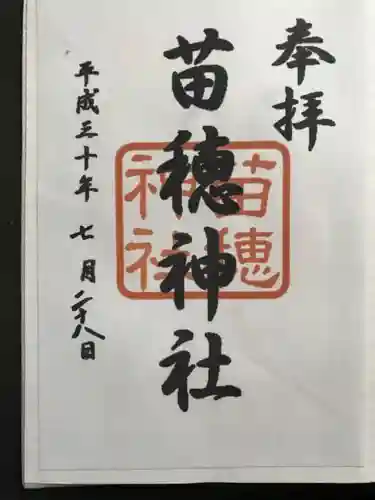 奉拝
苗穂神社
苗穂
神社
平成三十年七月二十八日